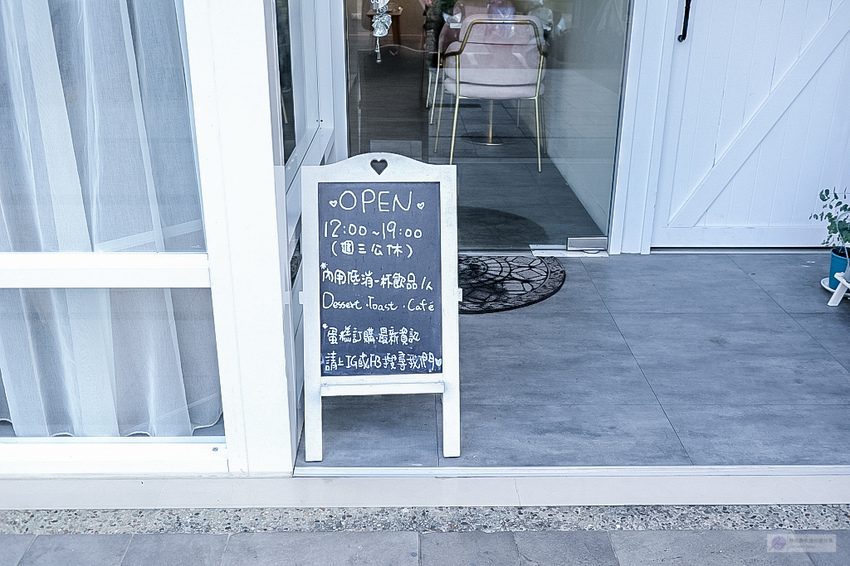 ♥OPEN♥
12:00~19:00
(週三公休)
*內用低消一杯飲品/人
Dessert·Toast·Café
*蛋糕訂購·最新資訊
請上IG或FB搜尋我們♥